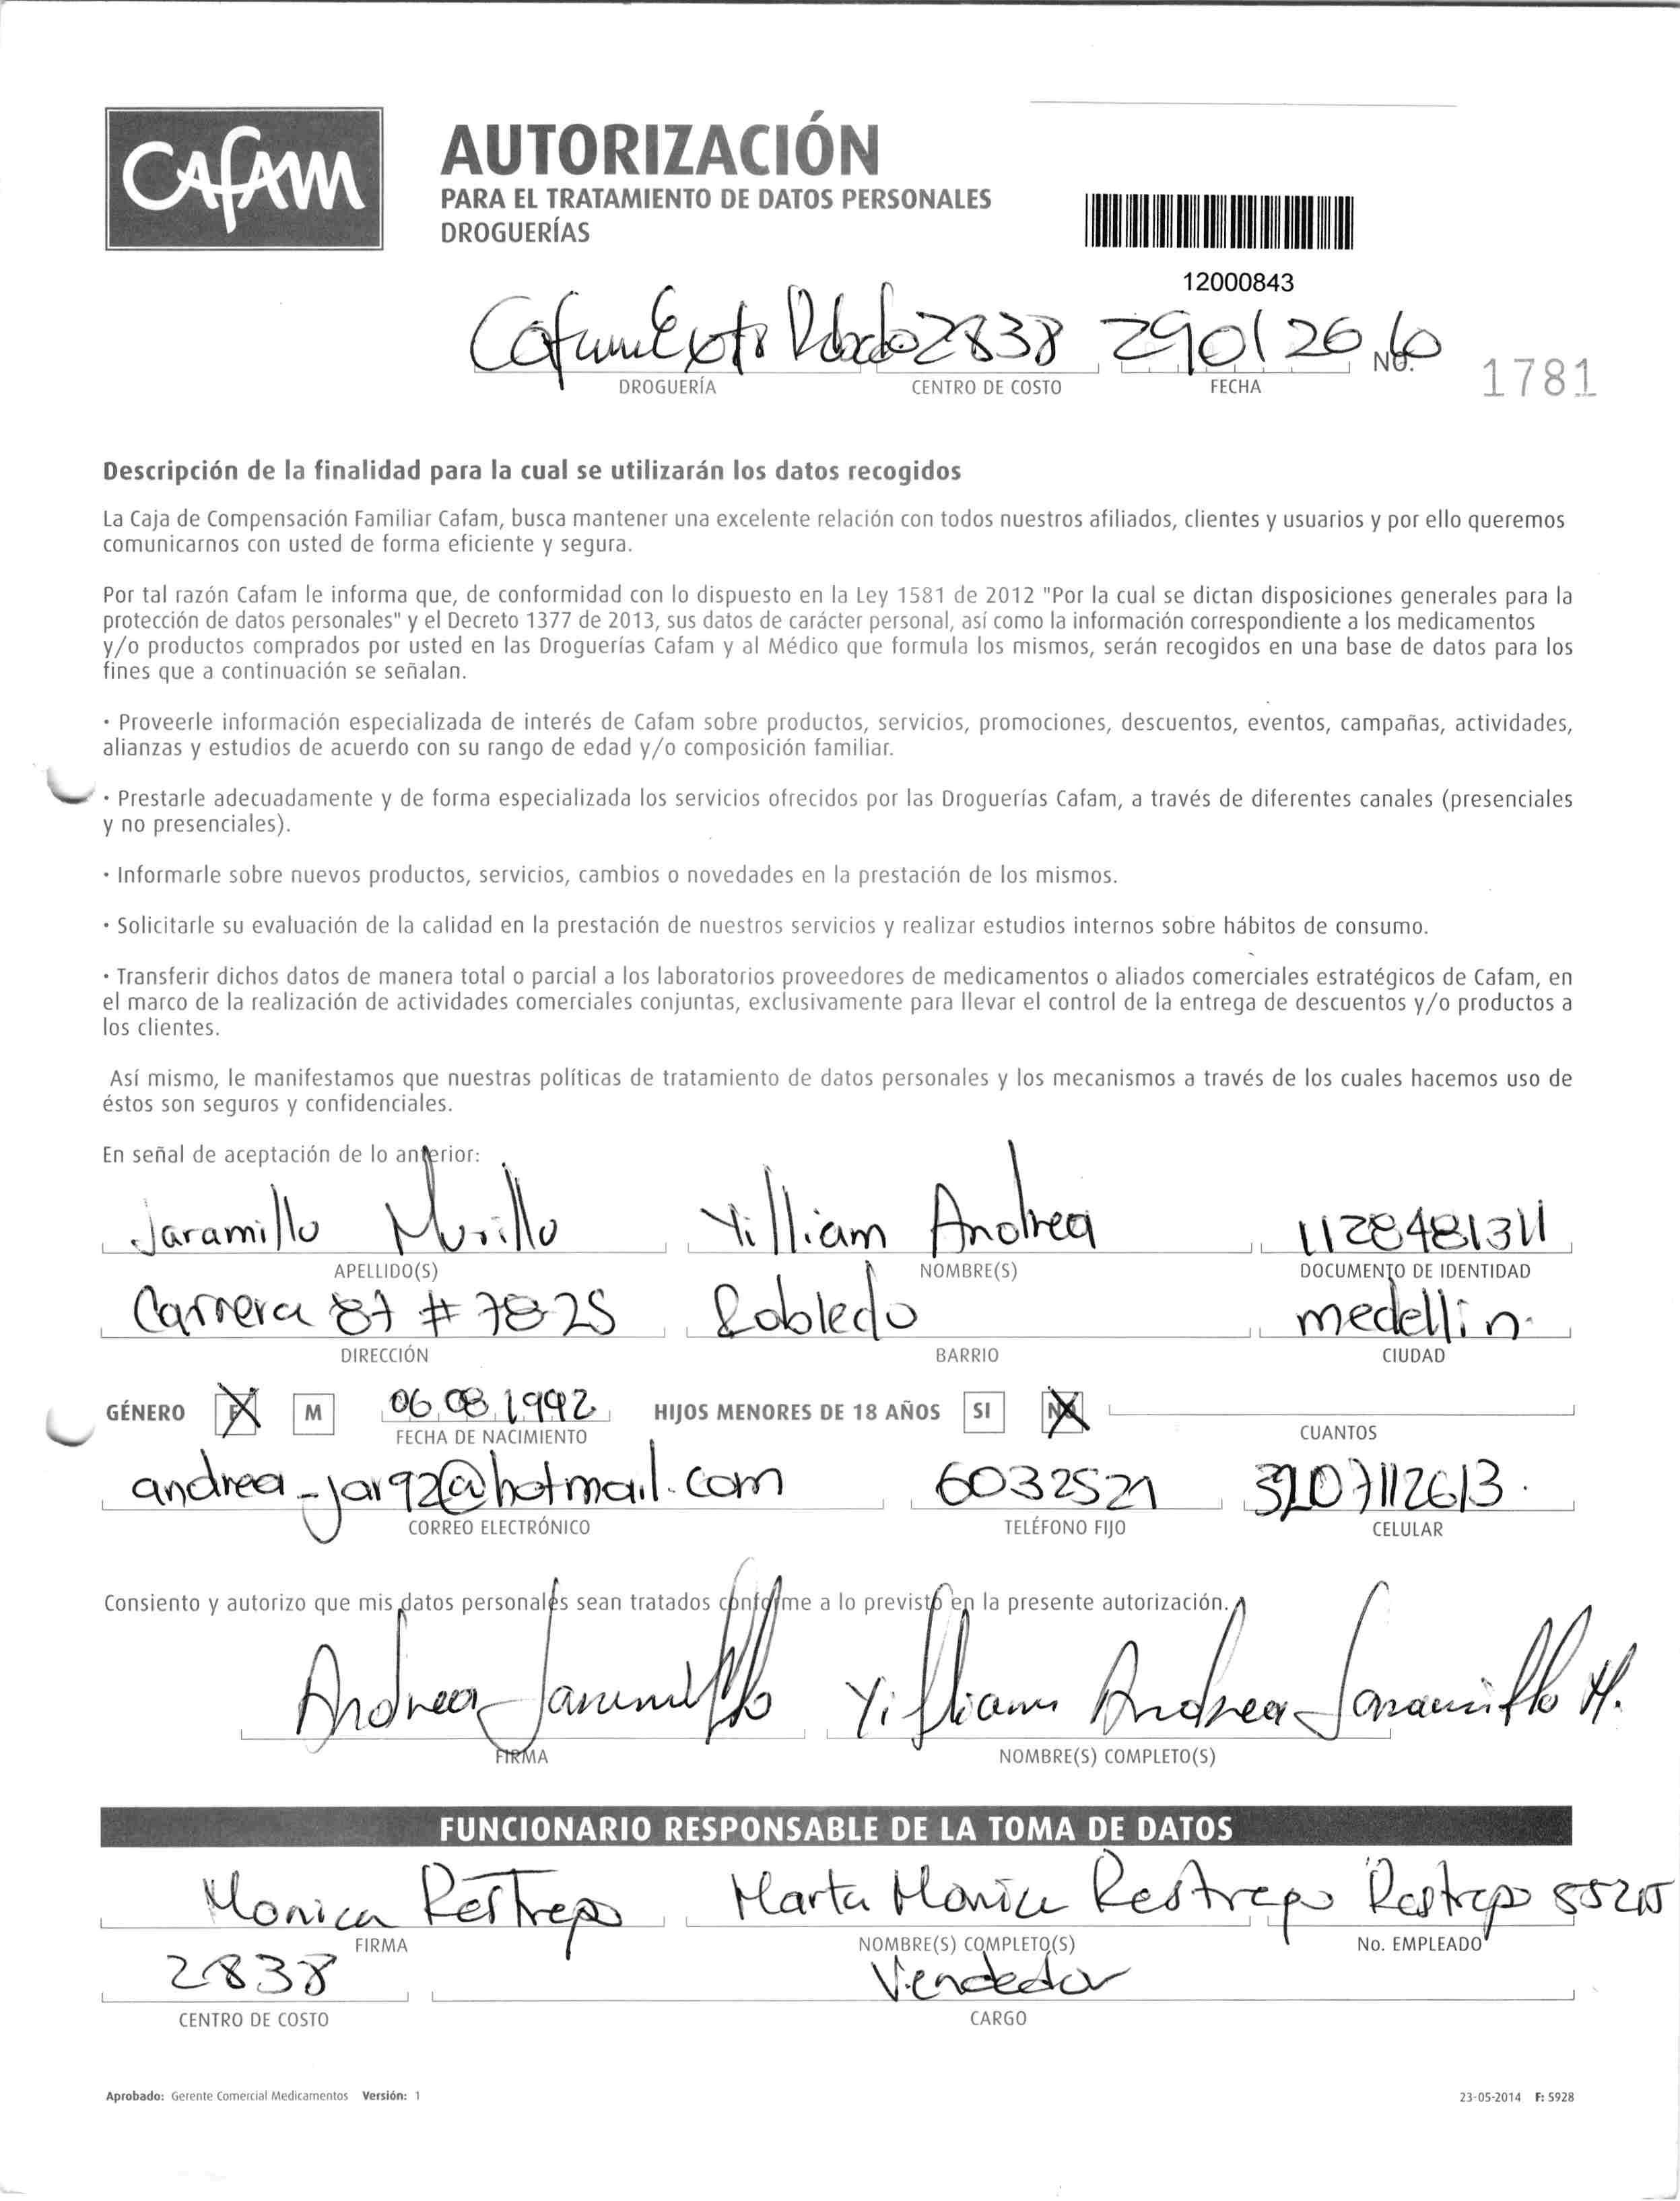 Cafam
AUTORIZACIÓN
PARA EL TRATAMIENTO DE DATOS PERSONALES
DROGUERÍAS
12000843
Cafam Exito Robledo 2838 29012016
DROGUERÍA CENTRO DE COSTO FECHA No. 1781
Descripción de la finalidad para la cual se utilizarán los datos recogidos
La Caja de Compensación Familiar Cafam, busca mantener una excelente relación con todos nuestros afiliados, clientes y usuarios y por ello queremos
comunicarnos con usted de forma eficiente y segura.
Por tal razón Cafam le informa que, de conformidad con lo dispuesto en la Ley 1581 de 2012 "Por la cual se dictan disposiciones generales para la
protección de datos personales" y el Decreto 1377 de 2013, sus datos de carácter personal, así como la información correspondiente a los medicamentos
y/o productos comprados por usted en las Droguerías Cafam y al Médico que formula los mismos, serán recogidos en una base de datos para los
fines que a continuación se señalan.
• Proveerle información especializada de interés de Cafam sobre productos, servicios, promociones, descuentos, eventos, campañas, actividades,
alianzas y estudios de acuerdo con su rango de edad y/o composición familiar.
• Prestarle adecuadamente y de forma especializada los servicios ofrecidos por las Droguerías Cafam, a través de diferentes canales (presenciales
y no presenciales).
• Informarle sobre nuevos productos, servicios, cambios o novedades en la prestación de los mismos.
• Solicitarle su evaluación de la calidad en la prestación de nuestros servicios y realizar estudios internos sobre hábitos de consumo.
• Transferir dichos datos de manera total o parcial a los laboratorios proveedores de medicamentos o aliados comerciales estratégicos de Cafam, en
el marco de la realización de actividades comerciales conjuntas, exclusivamente para llevar el control de la entrega de descuentos y/o productos a
los clientes.
Así mismo, le manifestamos que nuestras políticas de tratamiento de datos personales y los mecanismos a través de los cuales hacemos uso de
éstos son seguros y confidenciales.
En señal de aceptación de lo anterior:
Jaramillo Murillo Yilliam Andrea 1128481311
APELLIDO(S) NOMBRE(S) DOCUMENTO DE IDENTIDAD
Carrera 87 # 78-25 Robledo medellin.
DIRECCIÓN BARRIO CIUDAD
GÉNERO F M 06 08 1992 HIJOS MENORES DE 18 AÑOS SI NO
FECHA DE NACIMIENTO CUANTOS
andrea_jar92@hotmail.com 6032521 3207112613.
CORREO ELECTRÓNICO TELÉFONO FIJO CELULAR
Consiento y autorizo que mis datos personales sean tratados conforme a lo previsto en la presente autorización.
Andrea Jaramillo Yilliam Andrea Jaramillo M.
FIRMA NOMBRE(S) COMPLETO(S)
FUNCIONARIO RESPONSABLE DE LA TOMA DE DATOS
Monica Restrepo Marta Monica Restrepo Restrepo
FIRMA NOMBRE(S) COMPLETO(S) No. EMPLEADO
2838 Vendedor
CENTRO DE COSTO CARGO
Aprobado: Gerente Comercial Medicamentos Versión: 1 23-05-2014 F: 5928